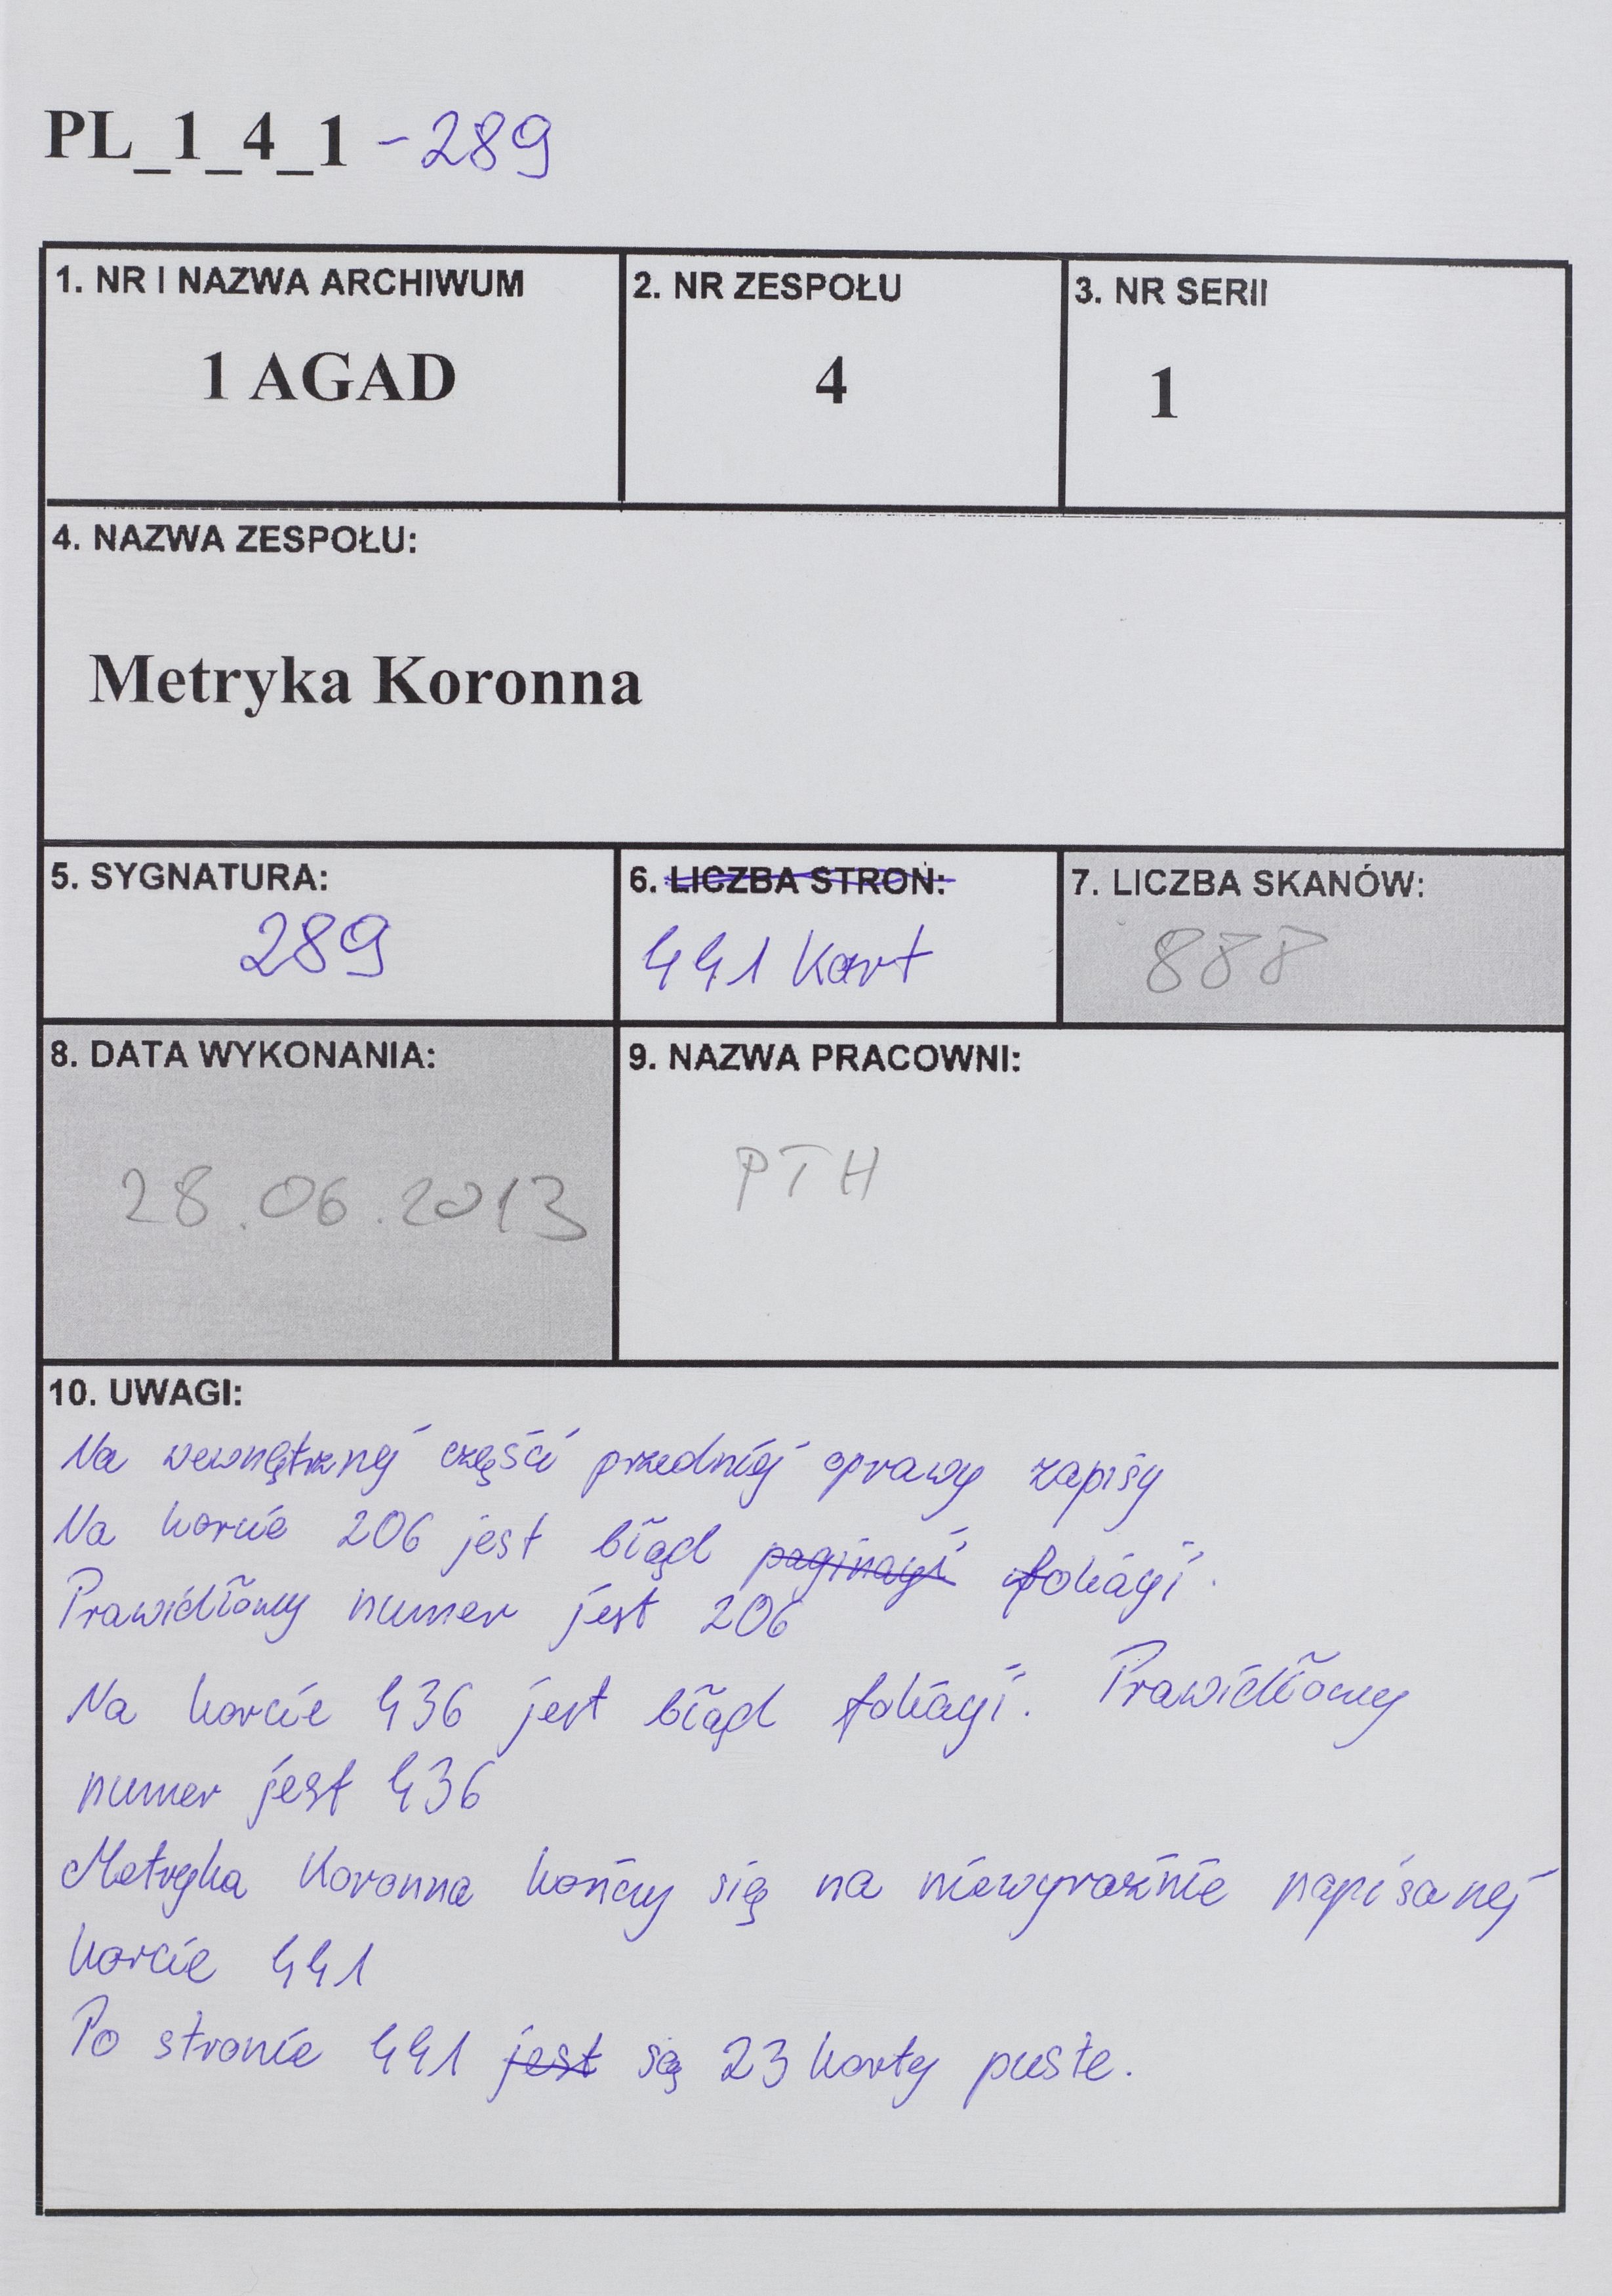 PL_1_4_1 - 289
1. NR I NAZWA ARCHIWUM
1 AGAD
2. NR ZESPOŁU
4
3. NR SERII
1
4. NAZWA ZESPOŁU:
Metryka Koronna
5. SYGNATURA:
289
6. LICZBA STRON:
441 Kart
7. LICZBA SKANÓW:
888
8. DATA WYKONANIA:
28.06.2013
9. NAZWA PRACOWNI:
PTH
10. UWAGI:
Na wewnętrznej części przedniej oprawy zapisy
Na karcie 206 jest błąd paginacji foliacji.
Prawidłowy numer jest 206
Na karcie 436 jest błąd foliacji. Prawidłowy
numer jest 436
Metryka Koronna kończy się na niewyraźnie napisanej
karcie 441
Po stronie 441 jest są 23 karty puste.